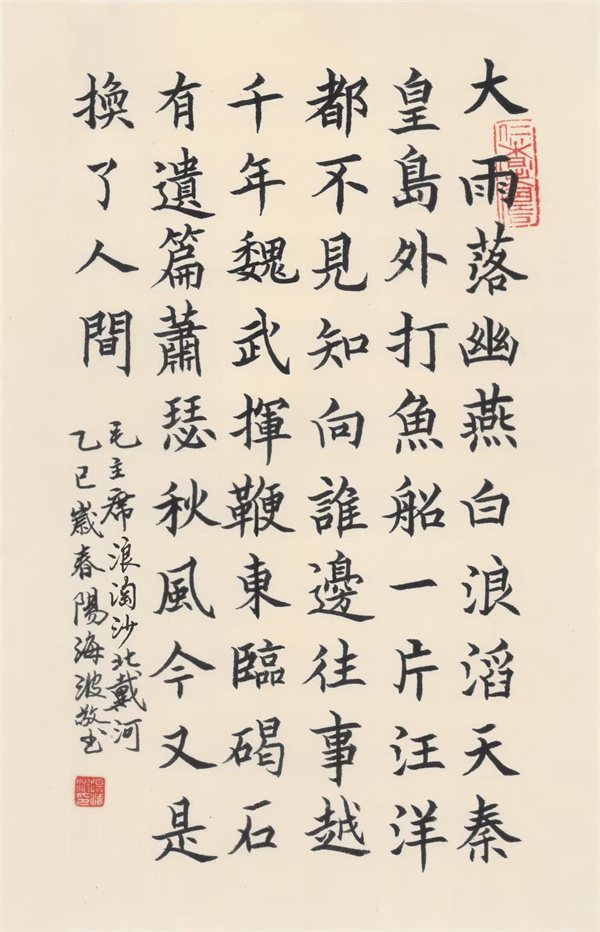 大雨落幽燕白浪滔天秦
皇島外打魚船一片汪洋
都不見知向誰邊往事越
千年魏武揮鞭東臨碣石
有遺篇蕭瑟秋風今又是
換了人間
毛主席浪淘沙北戴河
乙巳歲春陽海波敬书